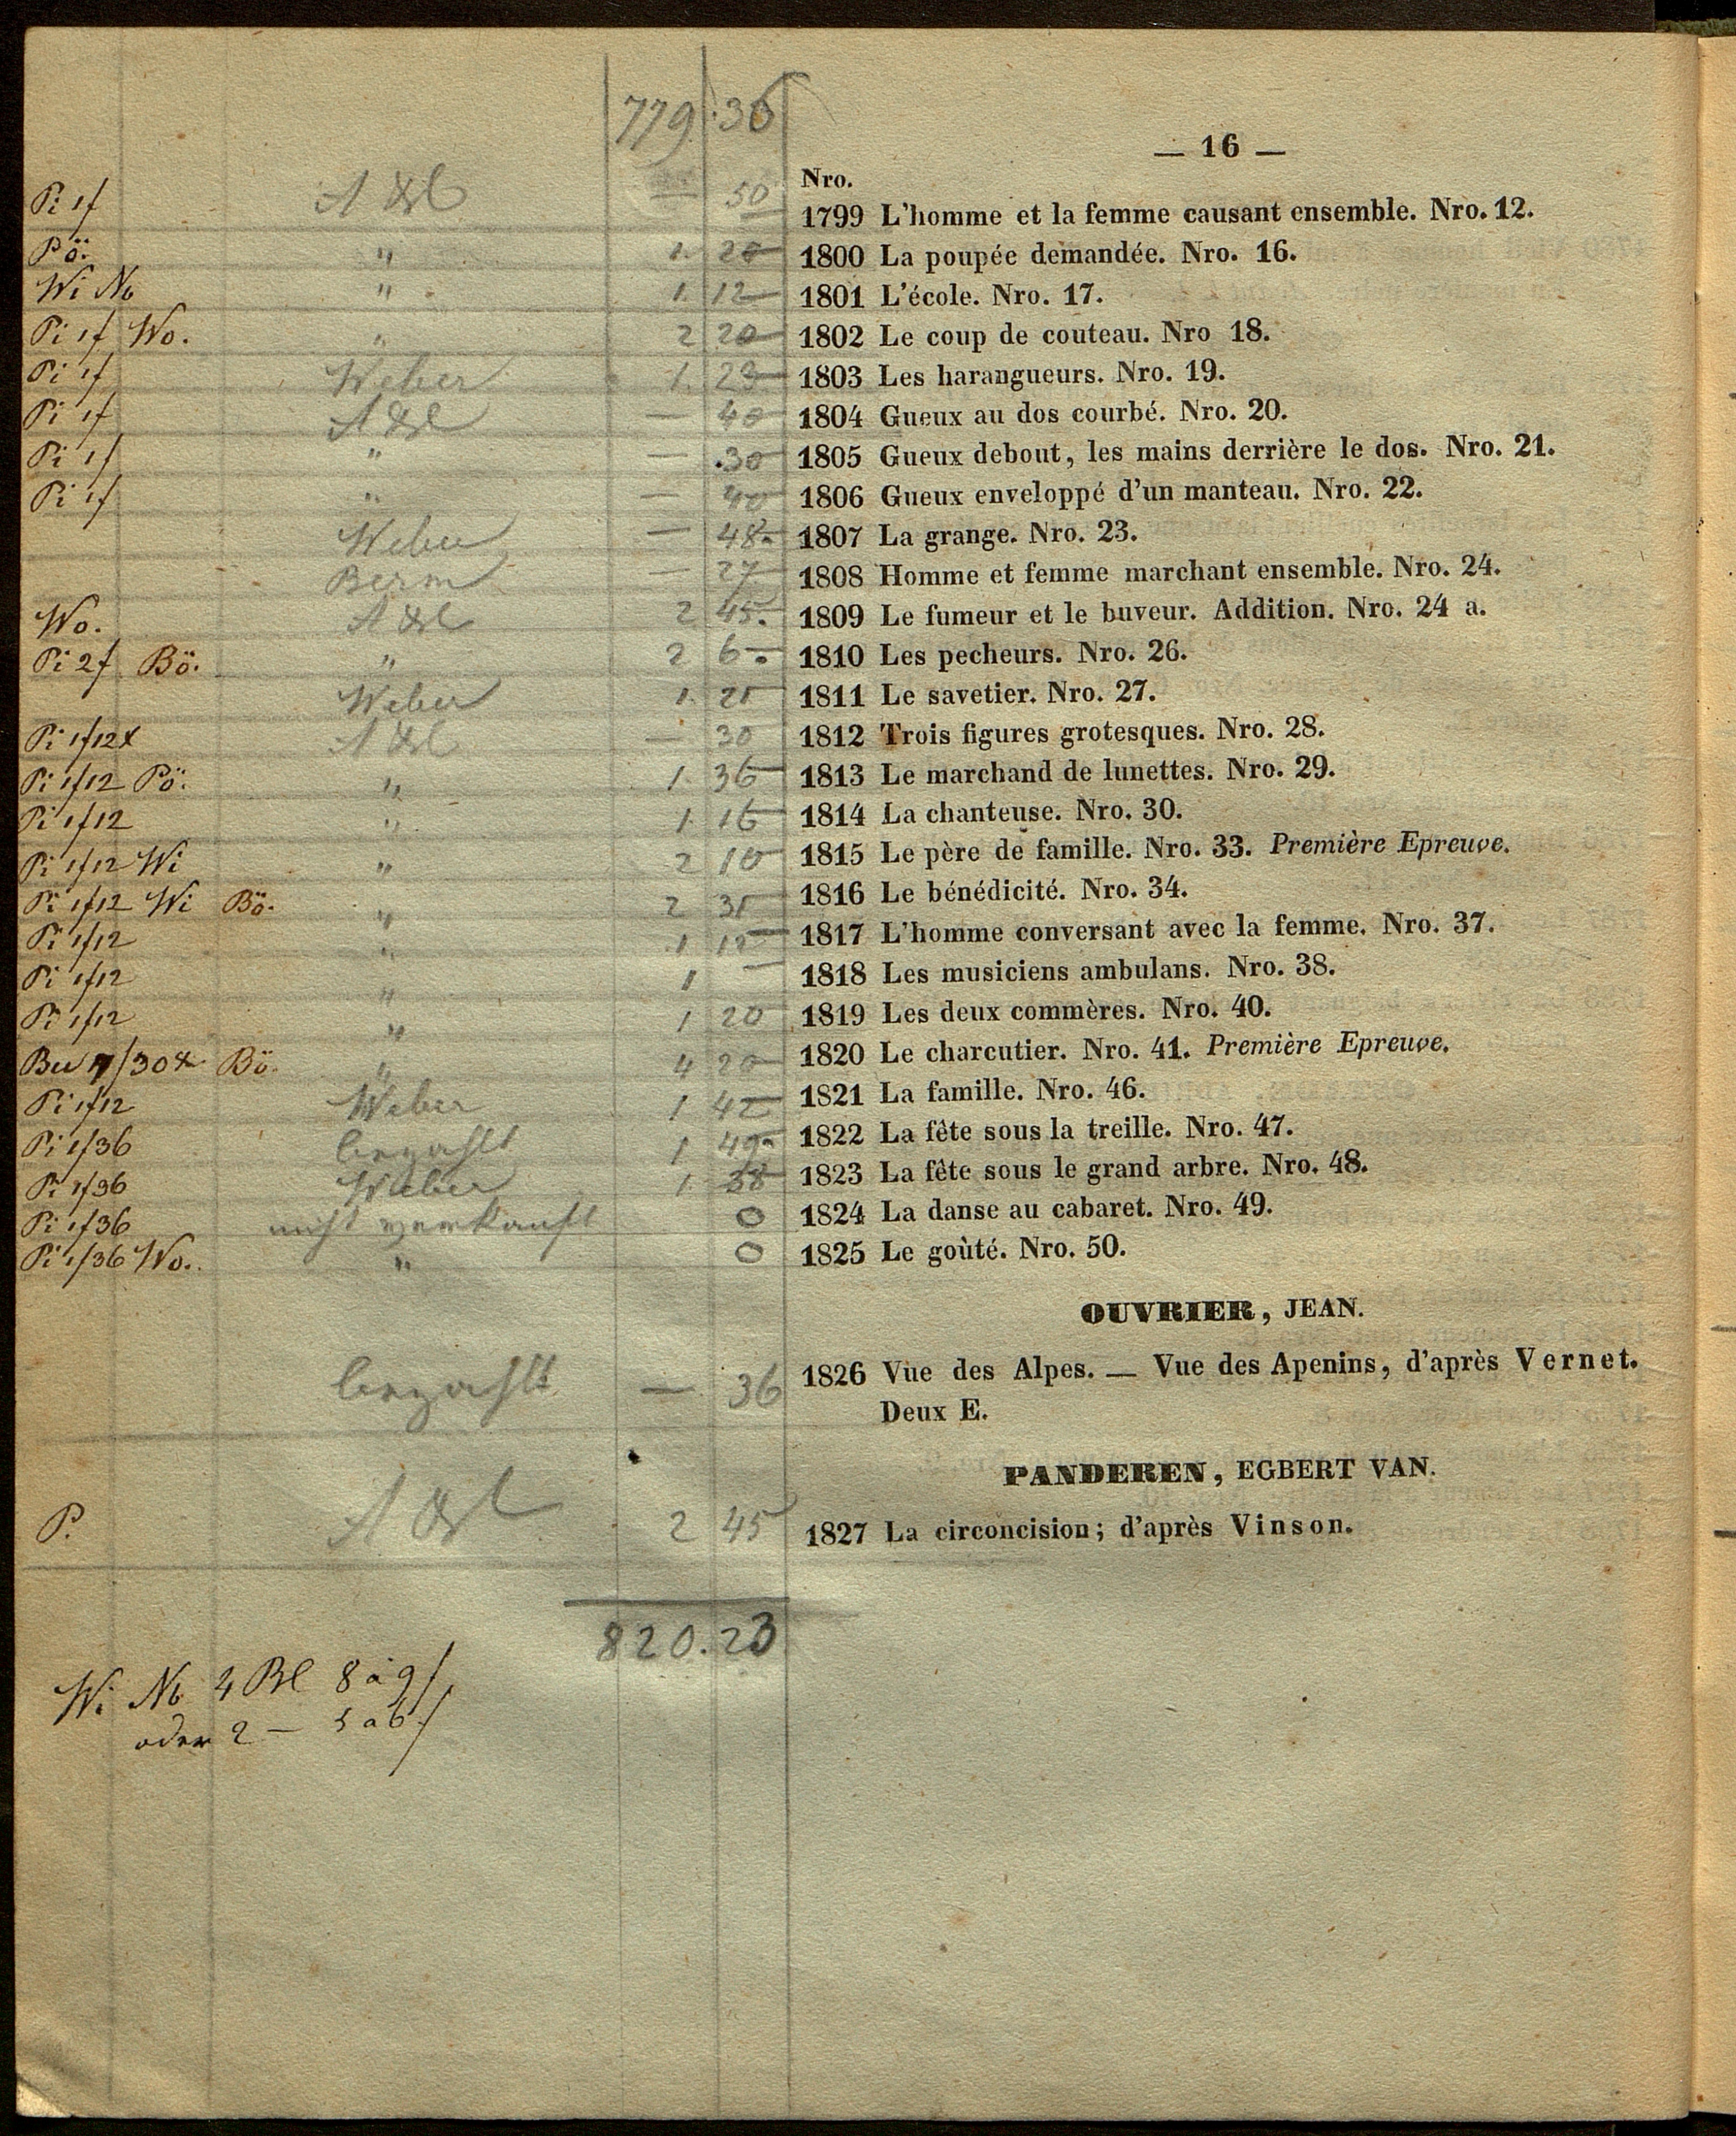 779. 36
— 16 —
Nro.
Pi 1f — 50 1799 L'homme et la femme causant ensemble. Nro. 12.
Pö. " 1. 20 1800 La poupée demandée. Nro. 16.
Wi Nb " 1. 12 1801 L'école. Nro. 17.
Pi 1f Wo. " 2 20 1802 Le coup de couteau. Nro 18.
Pi 1f Weber 1. 1803 Les harangueurs. Nro. 19.
Pi 1f — 40 1804 Gueux au dos courbé. Nro. 20.
Pi 1f " — 30 1805 Gueux debout, les mains derrière le dos. Nro. 21.
Pi 1f " — 40 1806 Gueux enveloppé d'un manteau. Nro. 22.
Weber — 48 1807 La grange. Nro. 23.
Berm — 27 1808 Homme et femme marchant ensemble. Nro. 24.
Wo. 2 45 1809 Le fumeur et le buveur. Addition. Nro. 24 a.
Pi 2f Bö. " 2 6 1810 Les pecheurs. Nro. 26.
Weber 1. 1811 Le savetier. Nro. 27.
Pi 1f12x — 30 1812 Trois figures grotesques. Nro. 28.
Pi 1f12 Pö. " 1. 36 1813 Le marchand de lunettes. Nro. 29.
Pi 1f12 " 1. 1814 La chanteuse. Nro. 30.
Pi 1f12 Wi " 2 10 1815 Le père de famille. Nro. 33. Première Epreuve.
Pi 1f12 Wi Bö. " 2 1816 Le bénédicité. Nro. 34.
Pi 1f12 " 1 1817 L'homme conversant avec la femme. Nro. 37.
Pi 1f12 " 1 — 1818 Les musiciens ambulans. Nro. 38.
Pi 1f12 " 1 20 1819 Les deux commères. Nro. 40.
Bö. " 4 20 1820 Le charcutier. Nro. 41. Première Epreuve.
Pi 1f12 Weber 1 42 1821 La famille. Nro. 46.
Pi 1f36 bezahlt 1 49 1822 La fête sous la treille. Nro. 47.
Pi 1f36 Weber 1. 38 1823 La fête sous le grand arbre. Nro. 48.
Pi 1f36 nicht verkauft 0 1824 La danse au cabaret. Nro. 49.
Pi 1f36 Wo. " 0 1825 Le goùté. Nro. 50.
OUVRIER, JEAN.
bezahlt — 36 1826 Vue des Alpes. — Vue des Apenins, d'après Vernet.
Deux E.
PANDEREN, EGBERT VAN.
P. 2 45 1827 La circoncision; d'après Vinson.
820.23
Wi Nb 4 Bl 8 à 9f
oder 2 — 5 a 6f